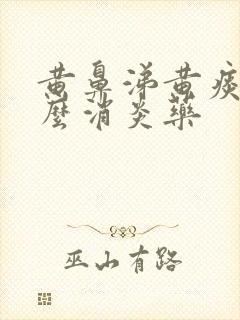 黄鼻涕黄痰
麼消炎藥
巫山有路